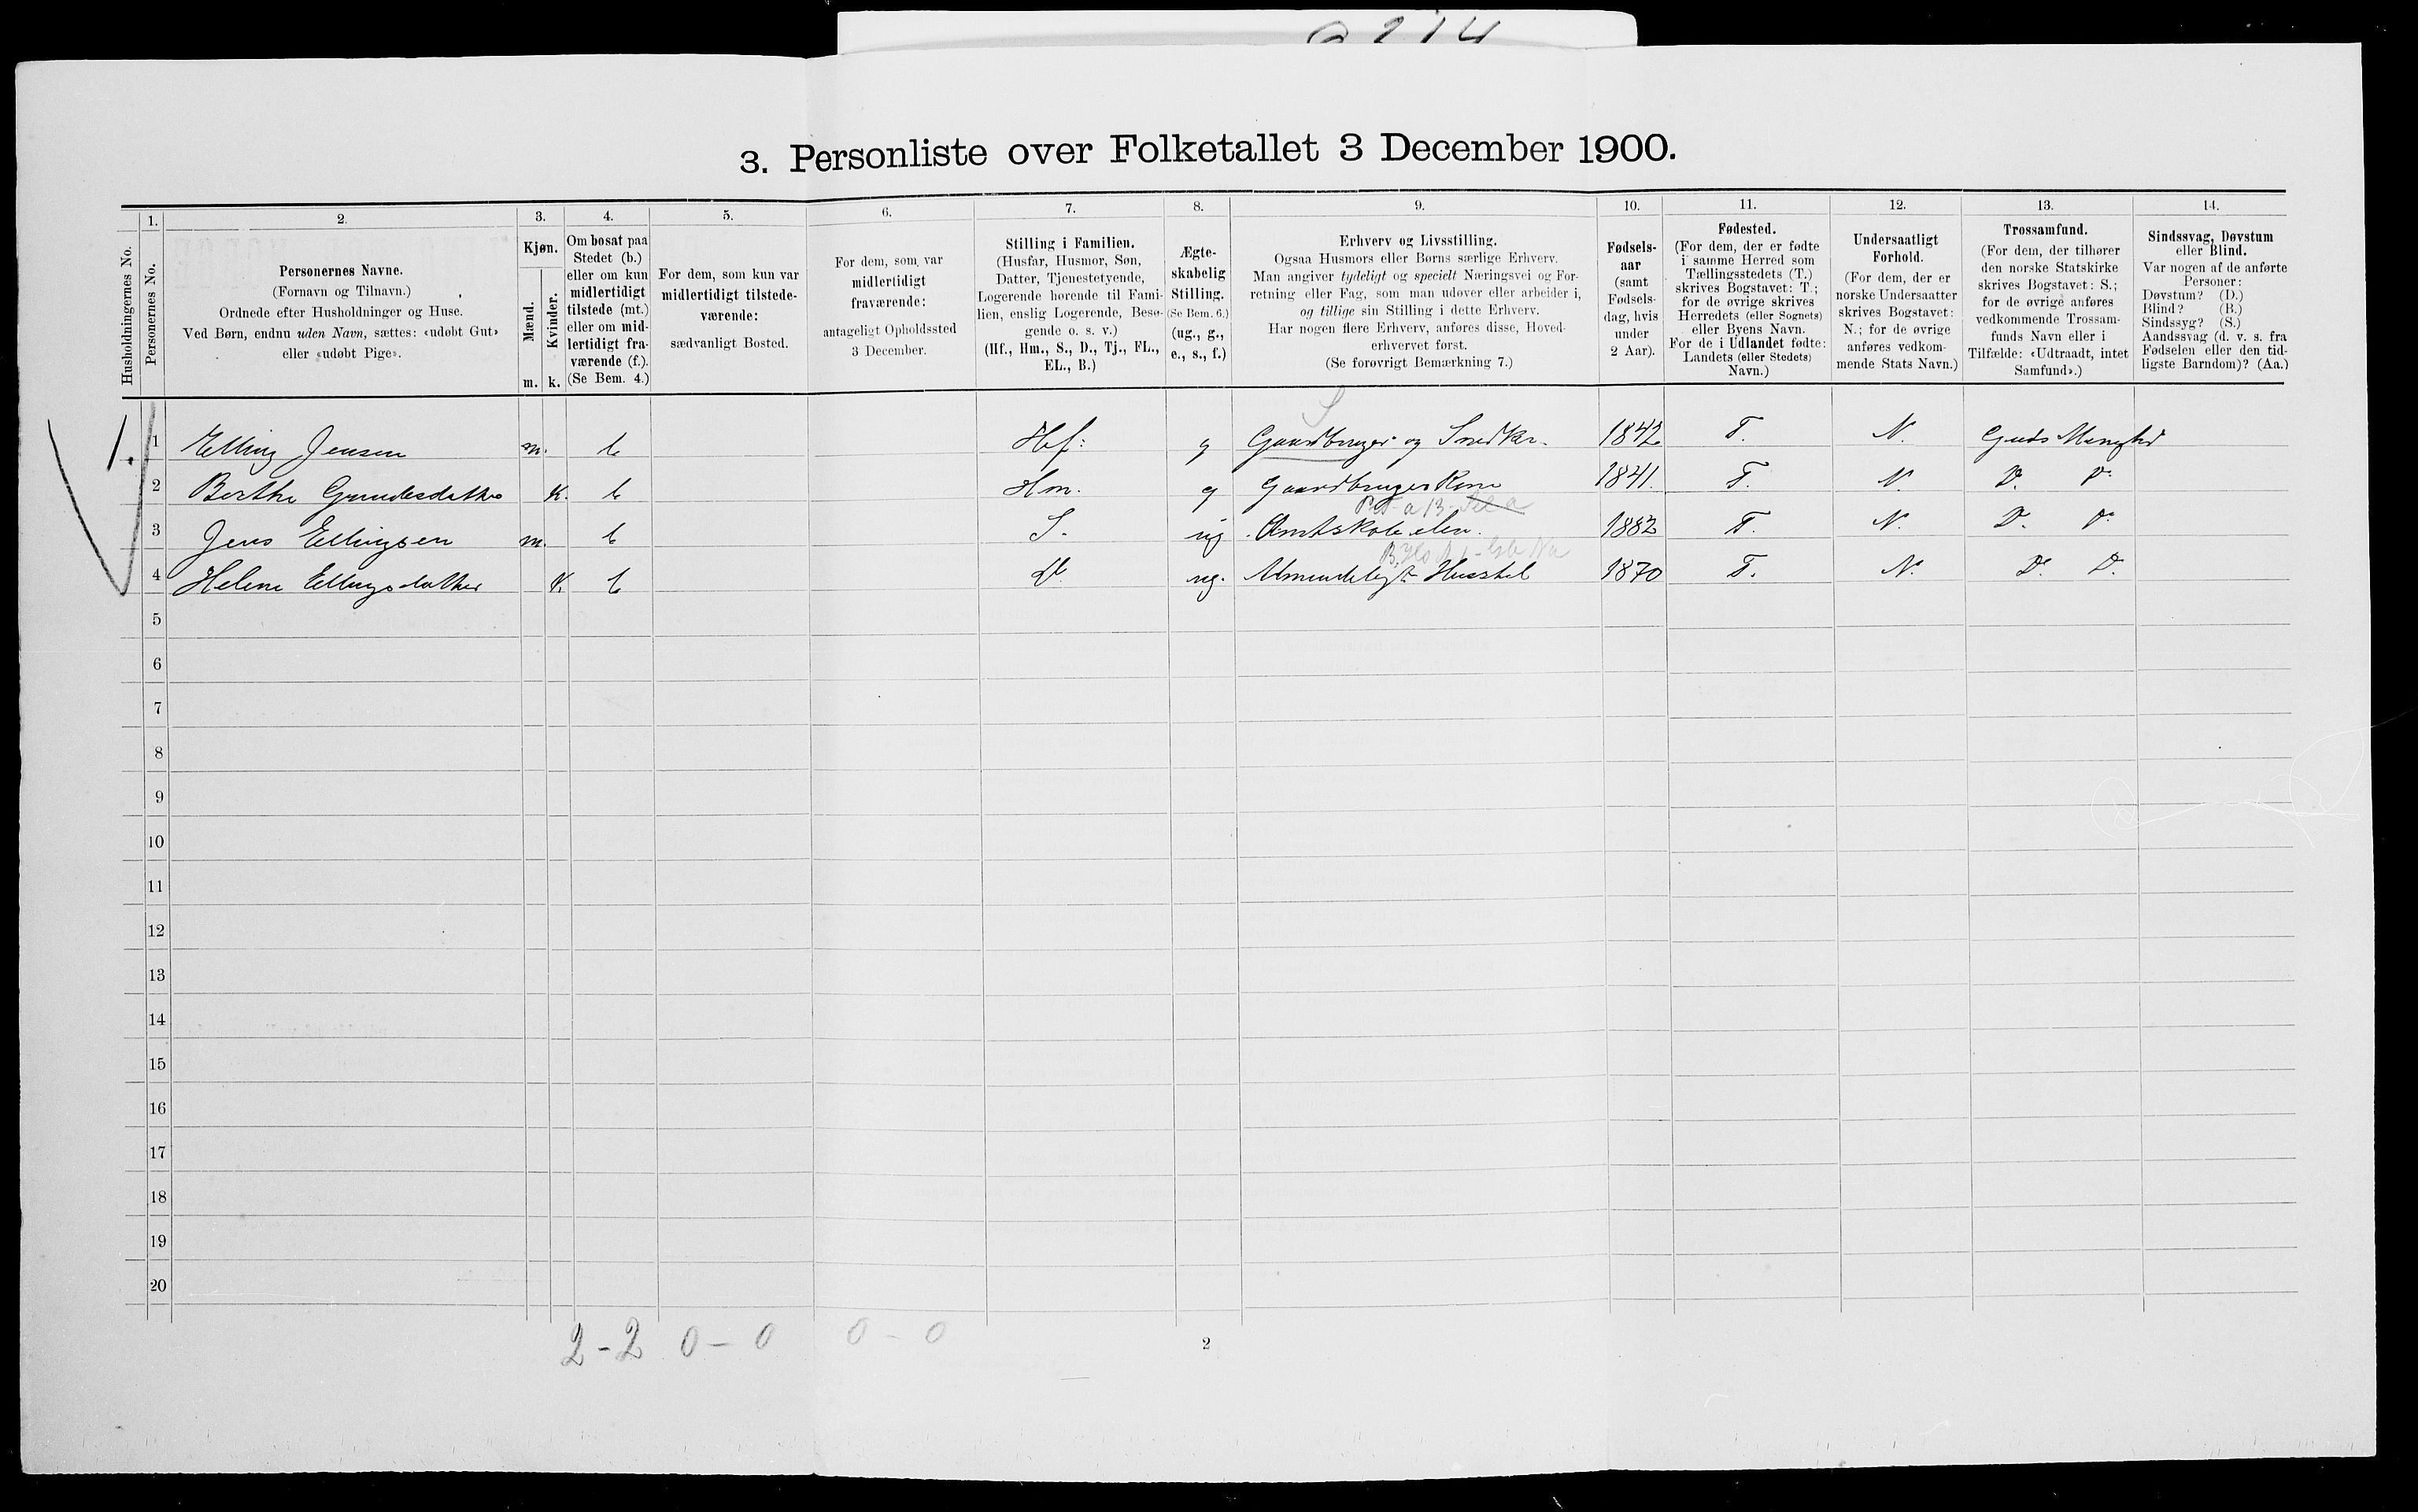 3. Personliste over Folketallet 3 December 1900.
Husholdningernes No.
1.
Personernes No.
2.
Personernes Navne.
(Fornavn og Tilnavn.)
Ordnede efter Husholdninger og Huse.
Ved Børn, endnu uden Navn, sættes: «udøbt Gut»
eller «udøbt Pige».
3.
Kjøn.
Mænd.
Kvinder.
m. k.
4.
Om bosat paa
Stedet (b.)
eller om kun
midlertidigt
tilstede (mt.)
eller om mid-
lertidigt fra-
værende (f.).
(Se Bem. 4.)
5.
For dem, som kun var
midlertidigt tilstede-
værende:
sædvanligt Bosted.
6.
For dem, som var
midlertidigt
fraværende:
antageligt Opholdssted
3 December.
7.
Stilling i Familien.
(Husfar, Husmor, Søn,
Datter, Tjenestetyende,
Logerende hørende til Fami-
lien, enslig Logerende, Besø-
gende o. s. v.)
(Hf., Hm., S., D., Tj., FL.,
EL., B.)
8.
Ægte-
skabelig
Stilling.
(Se Bem. 6.)
(ug., g.,
e., s., f.)
9.
Erhverv og Livsstilling.
Ogsaa Husmors eller Børns særlige Erhverv.
Man angiver tydeligt og specielt Næringsvei og For-
retning eller Fag, som man udøver eller arbeider i,
og tillige sin Stilling i dette Erhverv.
Har nogen flere Erhverv, anføres disse, Hoved-
erhvervet først.
(Se forøvrigt Bemærkning 7.)
10.
Fødsels-
aar
(samt
Fødsels-
dag, hvis
under
2 Aar).
11.
Fødested.
(For dem, der er fødte
i samme Herred som
Tællingsstedets (T.)
skrives Bogstavet: T.;
for de øvrige skrives
Herredets (eller Sognets)
eller Byens Navn.
For de i Udlandet fødte:
Landets (eller Stedets)
Navn.)
12.
Undersaatligt
Forhold.
(For dem, der er
norske Undersaatter
skrives Bogstavet:
N.; for de øvrige
anføres vedkom-
mende Stats Navn.)
13.
Trossamfund.
(For dem, der tilhører
den norske Statskirke
skrives Bogstavet: S.;
for de øvrige anføres
vedkommende Trossam-
funds Navn eller i
Tilfælde: «Udtraadt, intet
Samfund».)
14.
Sindssvag, Døvstum
eller Blind.
Var nogen af de anførte
Personer:
Døvstum? (D.)
Blind? (B.)
Sindssyg? (S.)
Aandssvag (d. v. s. fra
Fødselen eller den tid-
ligste Barndom)? (Aa.)
1. 1 Elling Jensen m. b Hf: g Gaardbruger og Snedker. 1842 T. N. Guds Menighed
2 Berthe k. b Hm. g Gaardbruger Kone 1841. T. N. D. D.
3 Jens Ellingsen m. b S. ug Amtskole elev. 1882 T. N. D. D.
4 Helene Ellingsdatter k. b D ug. Almindeligt Husstel 1870 T. N. D. D.
5
6
7
8
9
10
11
12
13
14
15
16
17
18
19
20
2-2 0-0 0-0
2